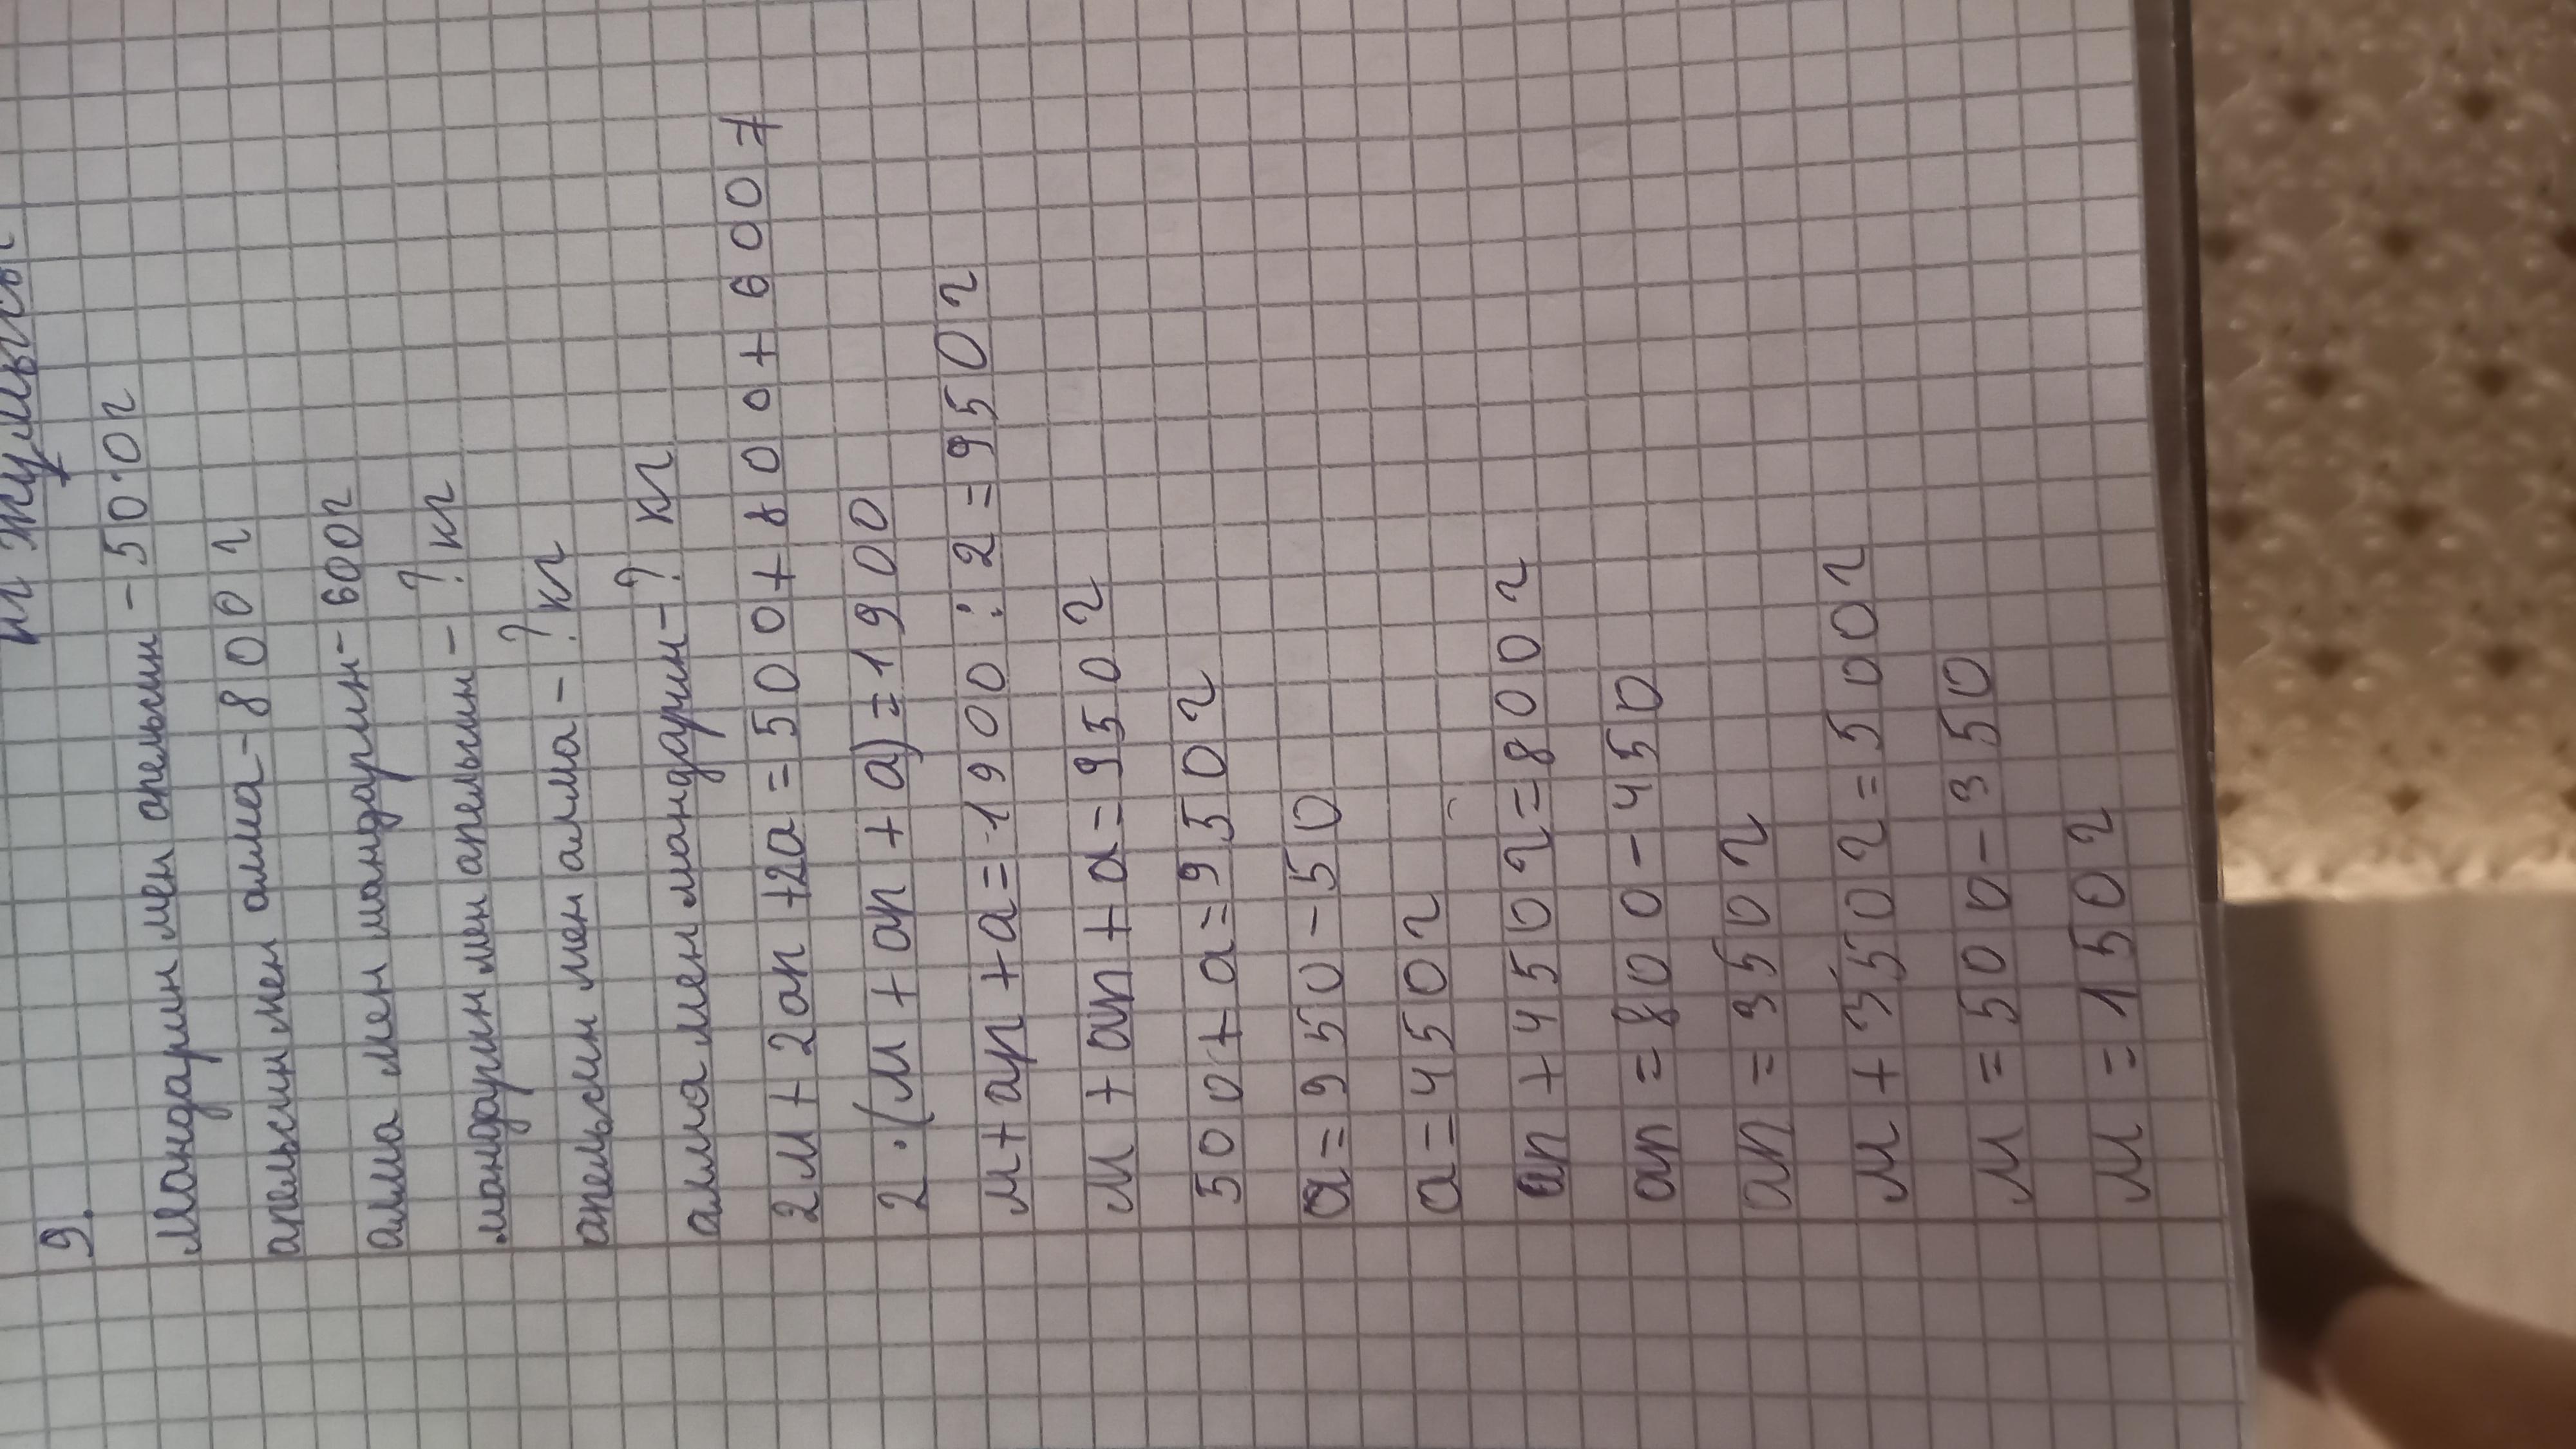 жумысы
9.
Мандарин мен апельсин - 500г
апельсин мен алма - 800г
алма мен мандарин - 600г
мандарин мен апельсин - ? кг
апельсин мен алма - ? кг
алма мен мандарин - ? кг
2м + 2ап + 2а = 500 + 800 + 600 =
2 · (м + ап + а) = 1900
м + ап + а = 1900 : 2 = 950г
м + ап + а = 950г
500 + а = 950г
а = 950 - 50
а = 450г
ап + 450г = 800г
ап = 800 - 450
ап = 350г
м + 350г = 500г
м = 500 - 350
м = 150г